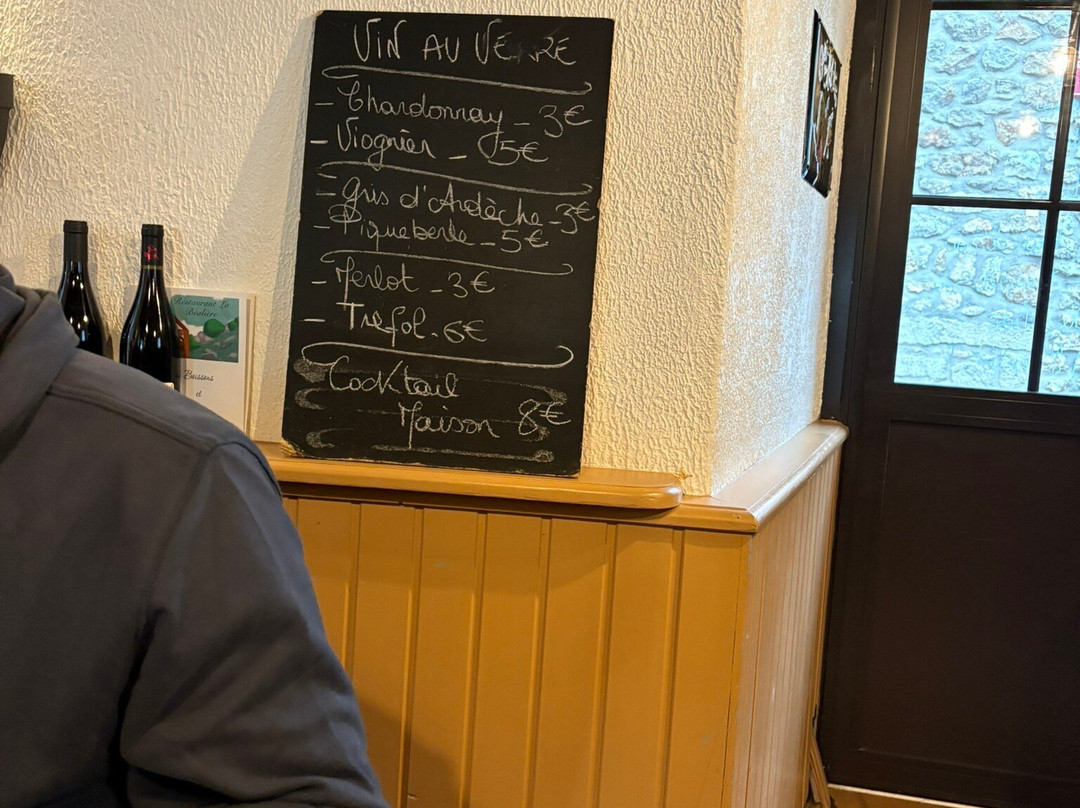 VIN AU VERRE
- Chardonnay - 3€
- Viognier - 5€
- Gris d'Ardèche - 3€
- Piqueberle - 5€
- Merlot - 3€
- Trefol - 6€
Cocktail
Maison 8€
Restaurant La
Béalière
Boissons
et